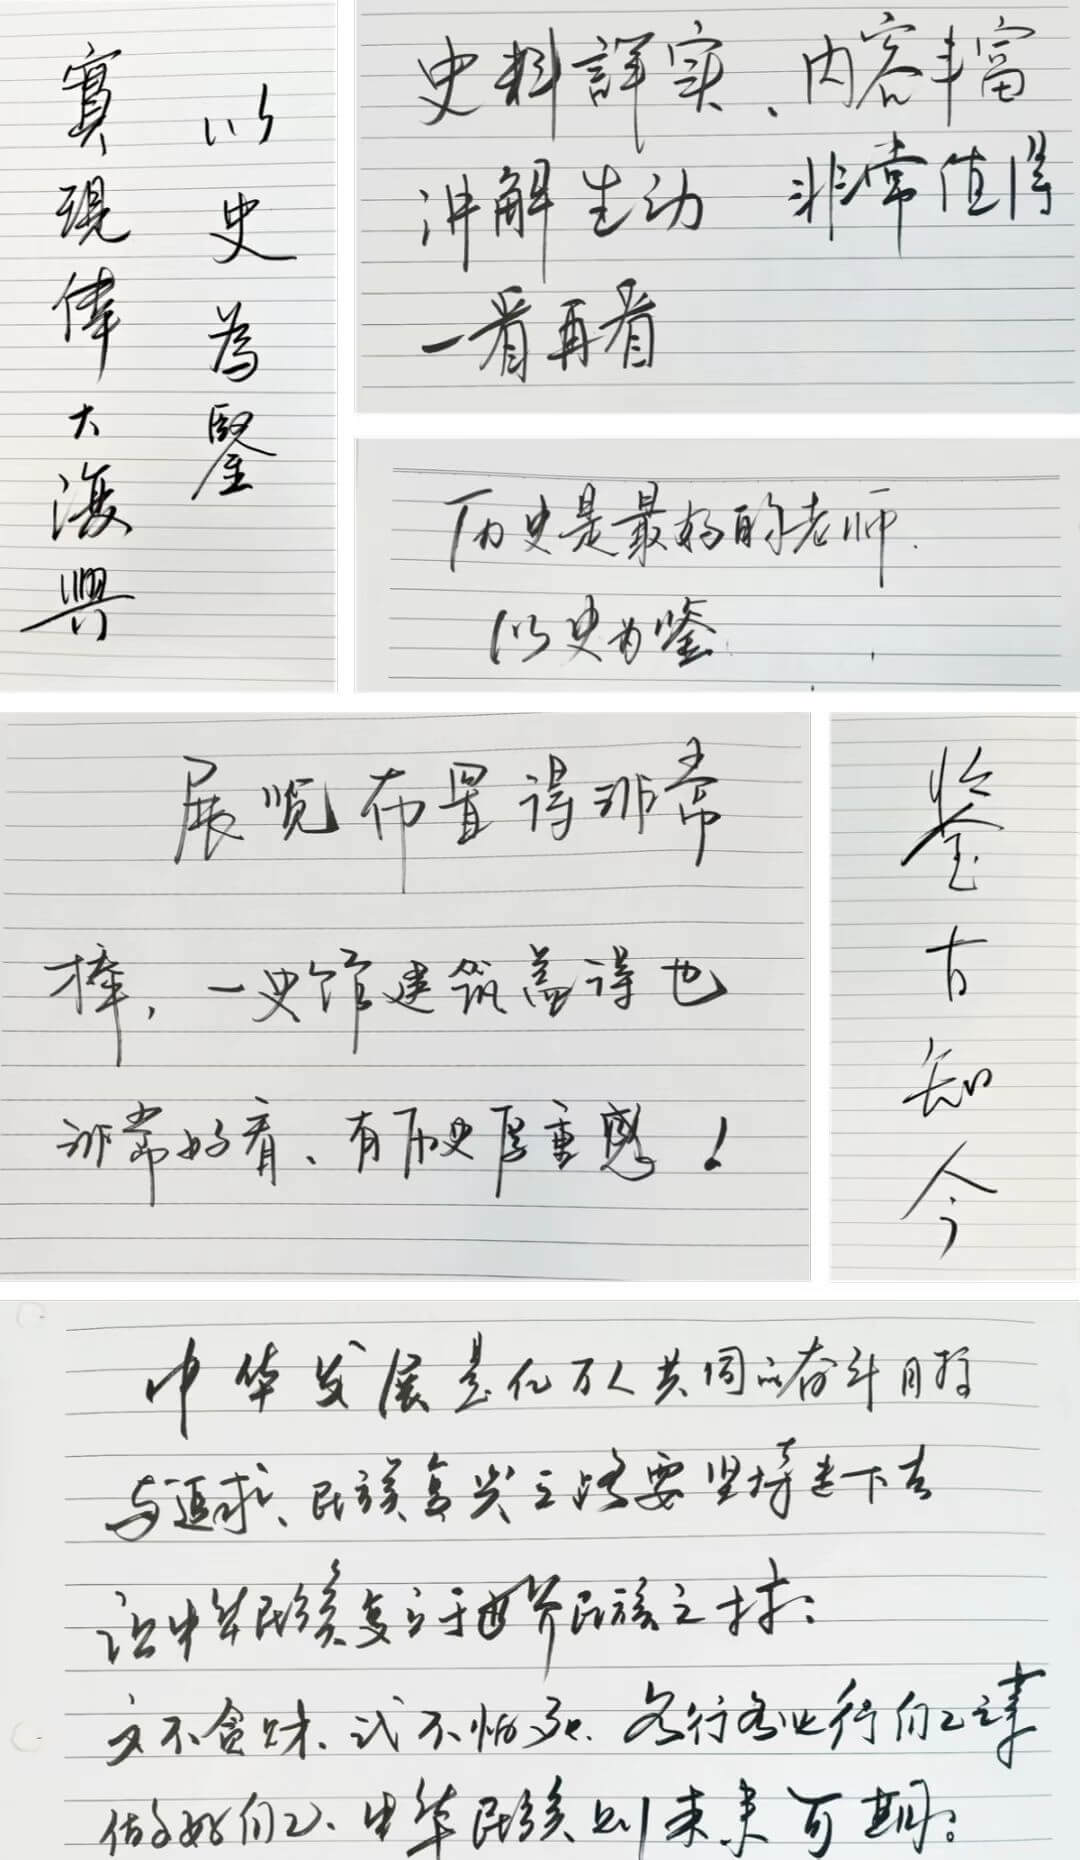 以史為鑒
實現偉大復興
史料詳实、内容丰富
讲解生动 非常值得
一看再看
历史是最好的老师.
以史为鉴
展览布置得非常
棒,一史馆建筑盖得也
非常好看、有历史厚重感!
鉴古知今
中华发展是亿万人共同的奋斗目标
与追求、民族复兴之路要坚持走下去
让中华民族复立于世界民族之林:
文不贪财、武不怕死. 各行各业行自己之事
做好自己、中华民族则未来可期: